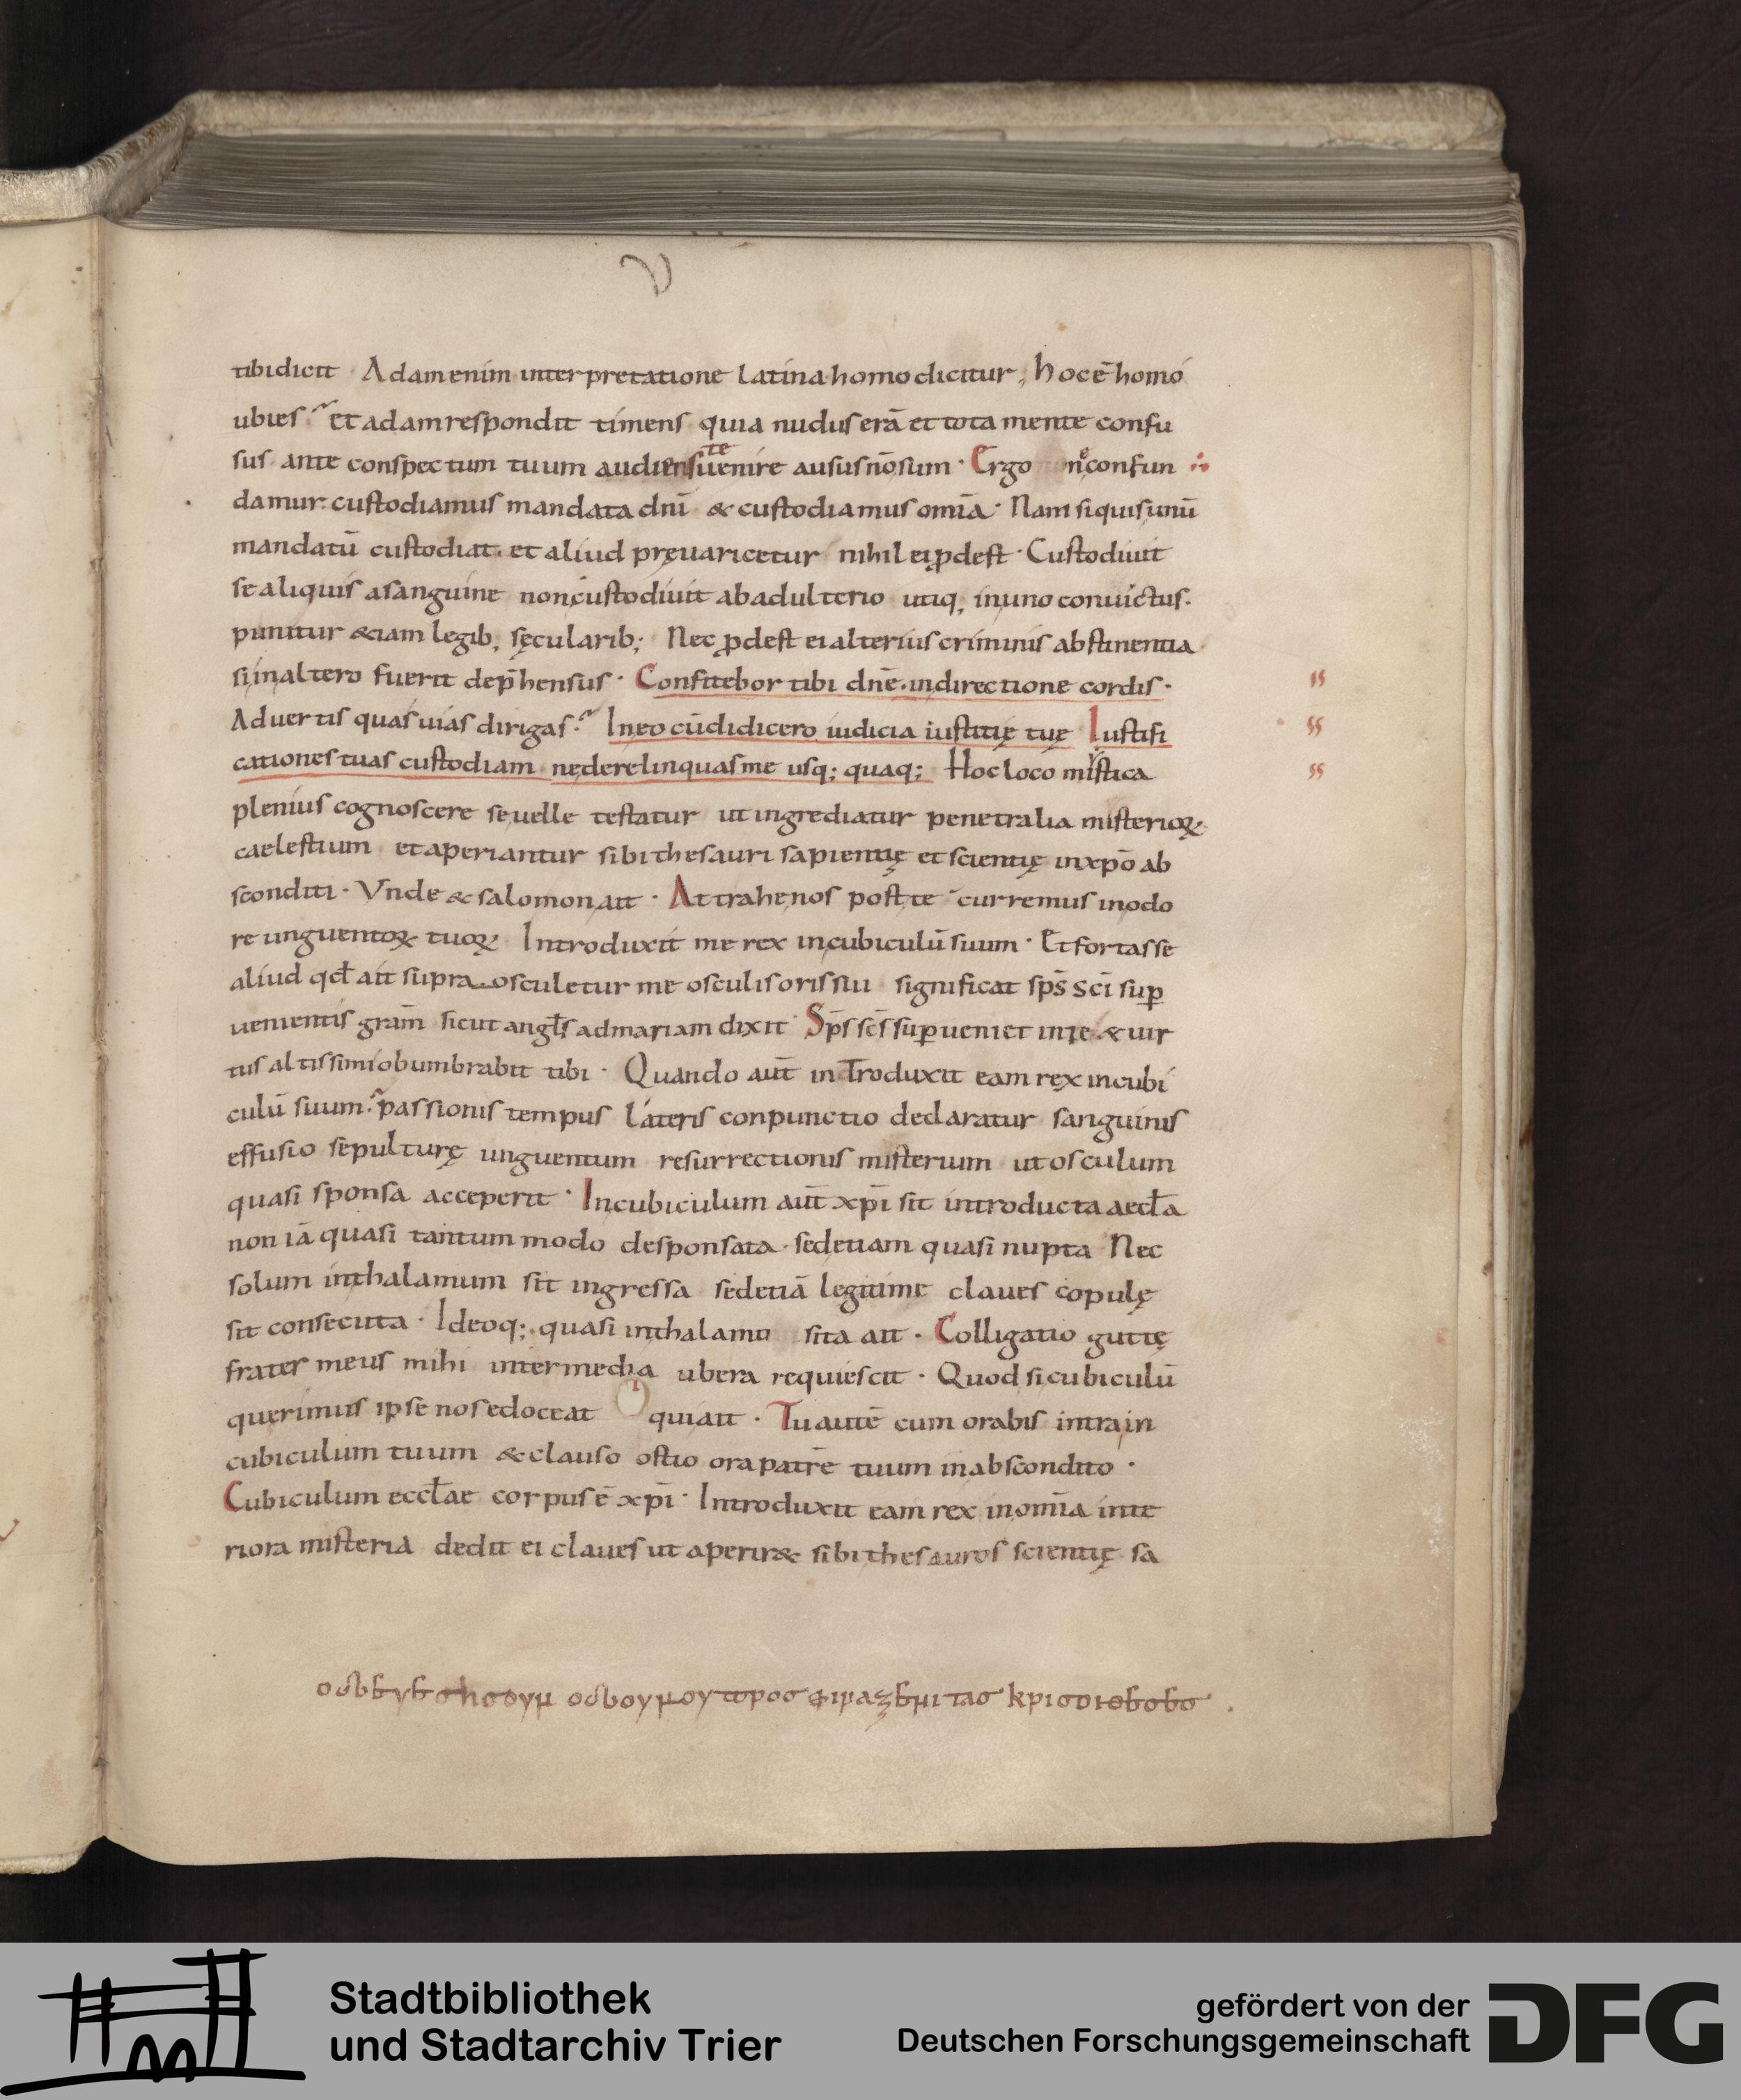 tibi dicit Adam enim interpretatione latina homo dicitur, hoc ē homo
ubi es et adam respondit timens quia nudus erā et tota mente confu
sus ante conspectum tuum audiens te uenire ausus nō sum · Ergo ne confun
damur custodiamus mandata dnī & custodiamus omīa · Nam si quis unū
mandatū custodiat · et aliud pręuaricetur nihil ei ꝓdest · Custodiuit
se aliquis a sanguine non custodiuit ab adulterio utiq, in uno conuictus ·
punitur &iam legib, sęcularib; Nec ꝓdest ei alterius criminis abstinentia
si in altero fuerit dep̄hensus · Confitebor tibi dnē · in directione cordis ·
Aduertis quas uias dirigas · In eo cū didicero iudicia iustitię tuę Iustifi
cationes tuas custodiam ne derelinquas me usq; quaq; Hoc loco mistica
plenius cognoscere se uelle testatur ut ingrediatur penetralia misterioꝝ
caelestium et aperiantur sibi thesauri sapientię et scientię in xpō ab
sconditi · Vnde & salomon ait · Attrahe nos post te curremus in odo
re unguentoꝝ tuoꝝ Introduxit me rex in cubiculū suum · Et fortasse
aliud qd̄ ait supra osculetur me osculis oris sui significat sp̄s scī suꝑ
uenientis gram̄ sicut angl̄s ad mariam dixit · Sp̄s sc̄s suꝑueniet in te & uir
tus altissimi obumbrabit tibi · Quando aut̄ introduxit eam rex in cubi
culū suum · passionis tempus lateris conpunctio declaratur sanguinis
effusio sepulturę unguentum resurrectionis misterium ut osculum
quasi sponsa acceperit · In cubiculum aut̄ xpī sit introducta aecl̄a
non iā quasi tantum modo desponsata · sed etiam quasi nupta Nec
solum in thalamum sit ingressa sed etiā legitime claues copulę
sit consecuta · Ideoq; quasi in thalamo sita ait · Colligatio guttę
frater meus mihi inter media ubera requiescit · Quod si cubiculū
querimus ipse nos edoceat qui ait · Tu autē cum orabis intra in
cubiculum tuum & clauso ostio ora patrē tuum in abscondito ·
Cubiculum eccl̄ae corpus ē xpī · Introduxit eam rex in omīa inte
riora misteria dedit ei claues ut aperir& sibi thesauros scientię sa
Stadtbibliothek
und Stadtarchiv Trier
gefördert von der
Deutschen Forschungsgemeinschaft
DFG